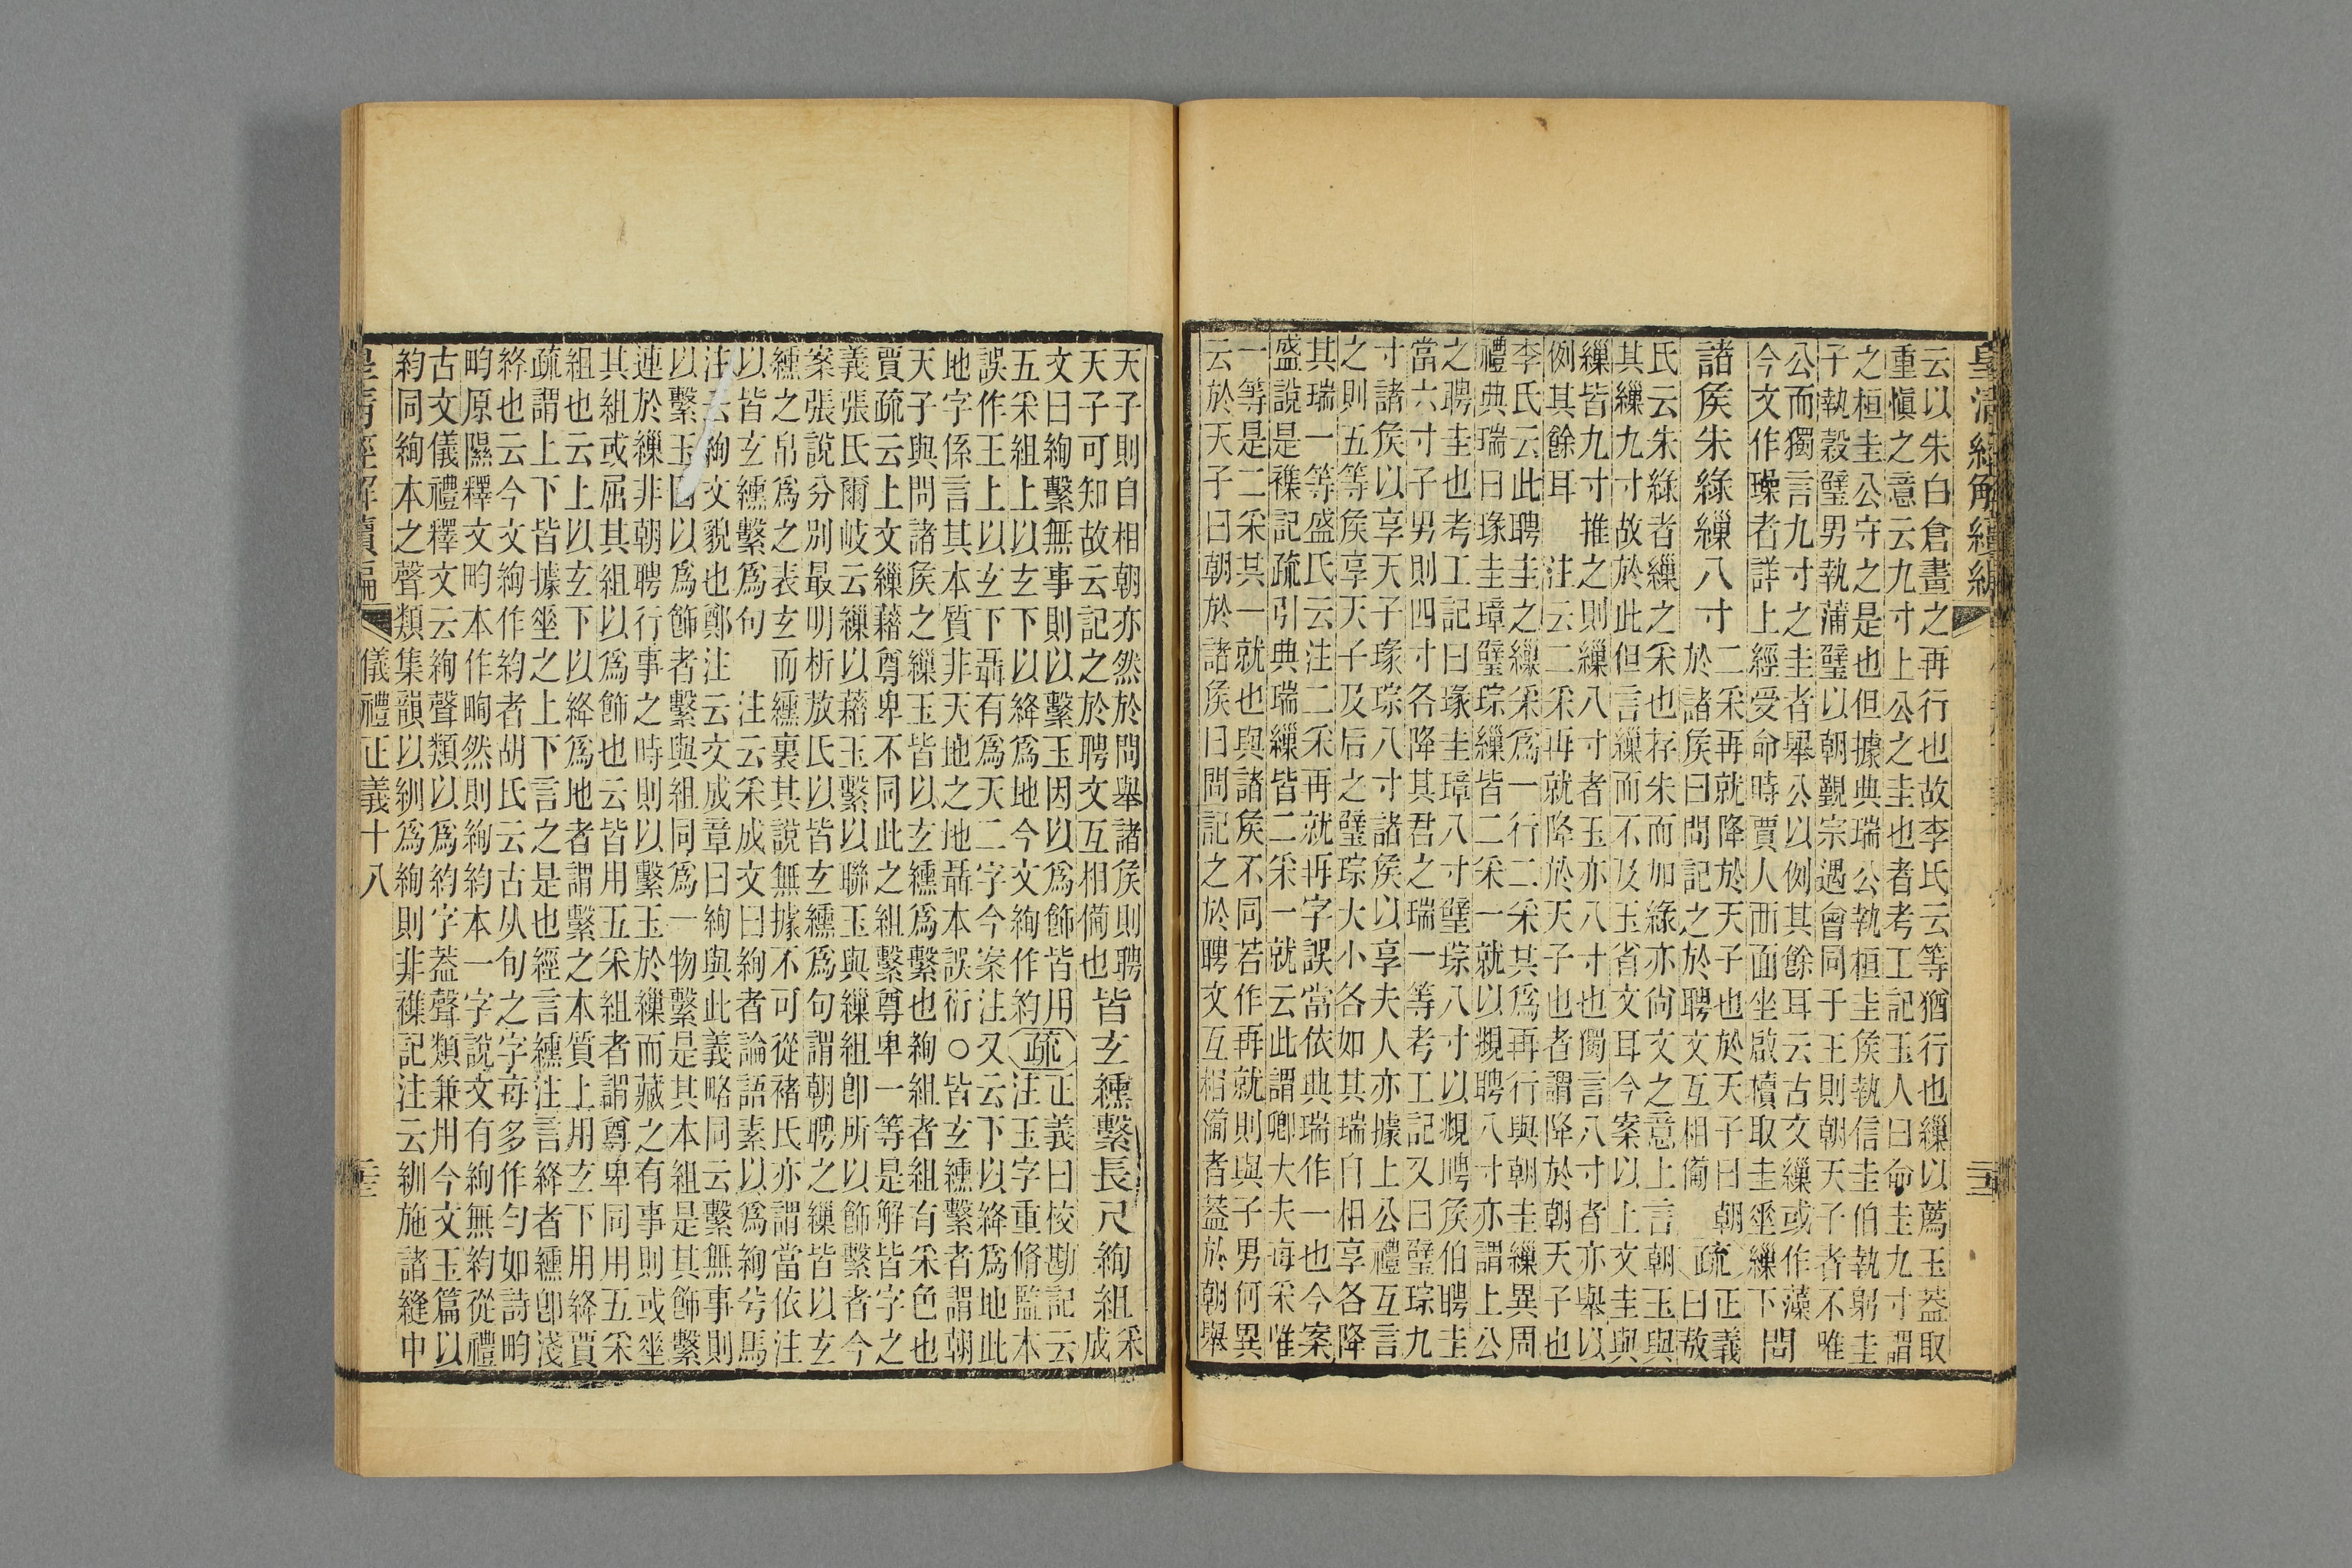 皇清經解續編
云以朱白倉畫之再行也故李氏云等猶行也繅以薦玉蓋取
重慎之意云九寸上公之圭也者考工記玉人曰命圭九寸謂
之桓圭公守之是也但據典瑞公執桓圭侯執信圭伯執躬圭
子執穀璧男執蒲璧以朝覲宗遇會同于王則朝天子者不唯
公而獨言九寸之圭者舉公以例其餘耳云古文繅或作藻
今文作璪者詳上經受命時賈人西面坐啟櫝取圭垂繅下 問
諸侯朱綠繅八寸
二采再就降於天子也於天子曰朝
於諸侯曰問記之於聘文互相備
疏
正義
曰敖
氏云朱綠者繅之采也存朱而如綠亦尚文之意上言朝玉與
其繅九寸故於此但言繅而不及玉省文耳今案以上文圭與
繅皆九寸推之則繅八寸者玉亦八寸也獨言八寸者亦舉以
例其餘耳 注云二采再就降於天子也者謂降於朝天子也
李氏云此聘圭之繅采爲一行二采其爲再行與朝圭繅異周
禮典瑞曰瑑圭璋璧琮繅皆二采一就以覜聘八寸亦謂上公
之聘圭也考工記曰瑑圭璋八寸璧琮八寸以覜聘侯伯聘圭
當六寸子男則四寸各降其君之瑞一等考工記又曰璧琮九
寸諸侯以享天子瑑琮八寸諸侯以享夫人亦據上公禮互言
之則五等侯享天子及后之璧琮大小各如其瑞自相享各降
其瑞一等盛氏云注二采再就再字誤當依典瑞作一也今案
盛說是襍記疏引典瑞繅皆二采一就云此謂卿大夫每采唯
一等是二采其一就也與諸侯不同若作再就則與子男何異
云於天子曰朝於諸侯曰問記之於聘文互相備者蓋於朝舉
天子則自相朝亦然於問舉諸侯則聘
天子可知故云記之於聘文互相備也
皆玄纁繫長尺絢組
采
成
文曰絢繫無事則以繫玉因以爲飾皆用
五采組上以玄下以絳爲地今文絢作約
疏
正義曰校勘記云
注玉字重脩監本
誤作王上以玄下聶有爲天二字今案注又云下以絳爲地此
地字係言其本質非天地之地聶本誤衍○皆玄纁繫者謂朝
天子與問諸侯之繅玉皆以玄纁爲繫也絢組者組有采色也
賈疏云上文繅藉尊卑不同此之組繫尊卑一等是解皆字之
義張氏爾岐云繅以藉玉繫以聯玉與繅組卽所以飾繫者今
案張說分別最明析敖氏以皆玄纁爲句謂朝聘之繅皆以玄
纁之帛爲之表玄而纁裏其說無據不可從褚氏亦謂當依注
以皆玄纁繫爲句 注云采成文曰絢者論語素以爲絢兮馬
注云絢文貌也鄭注云文成章曰絢與此義略同云繫無事則
以繫玉因以爲飾者繫與組同爲一物繫是其本組是其飾繫
連於繅非朝聘行事之時則以繫玉於繅而藏之有事則或垂
其組或屈其組以爲飾也云皆用五采組者謂尊卑同用五采
組也云上以玄下以絳爲地者謂繫之本質上用玄下用絳賈
疏謂上下皆據垂之上下言之是也經言纁注言絳者纁卽淺
絳也云今文絢作約者胡氏云古从旬之字每多作勻如詩畇
畇原隰釋文畇本作㽦然則絢約本一字說文有絢無約從禮
古文儀禮釋文云絢聲類以爲約字蓋聲類兼用今文玉篇以
約同絢本之聲類集韻以紃爲絢則非襍記注云紃施諸縫中
皇清經解續編 儀禮正義十八